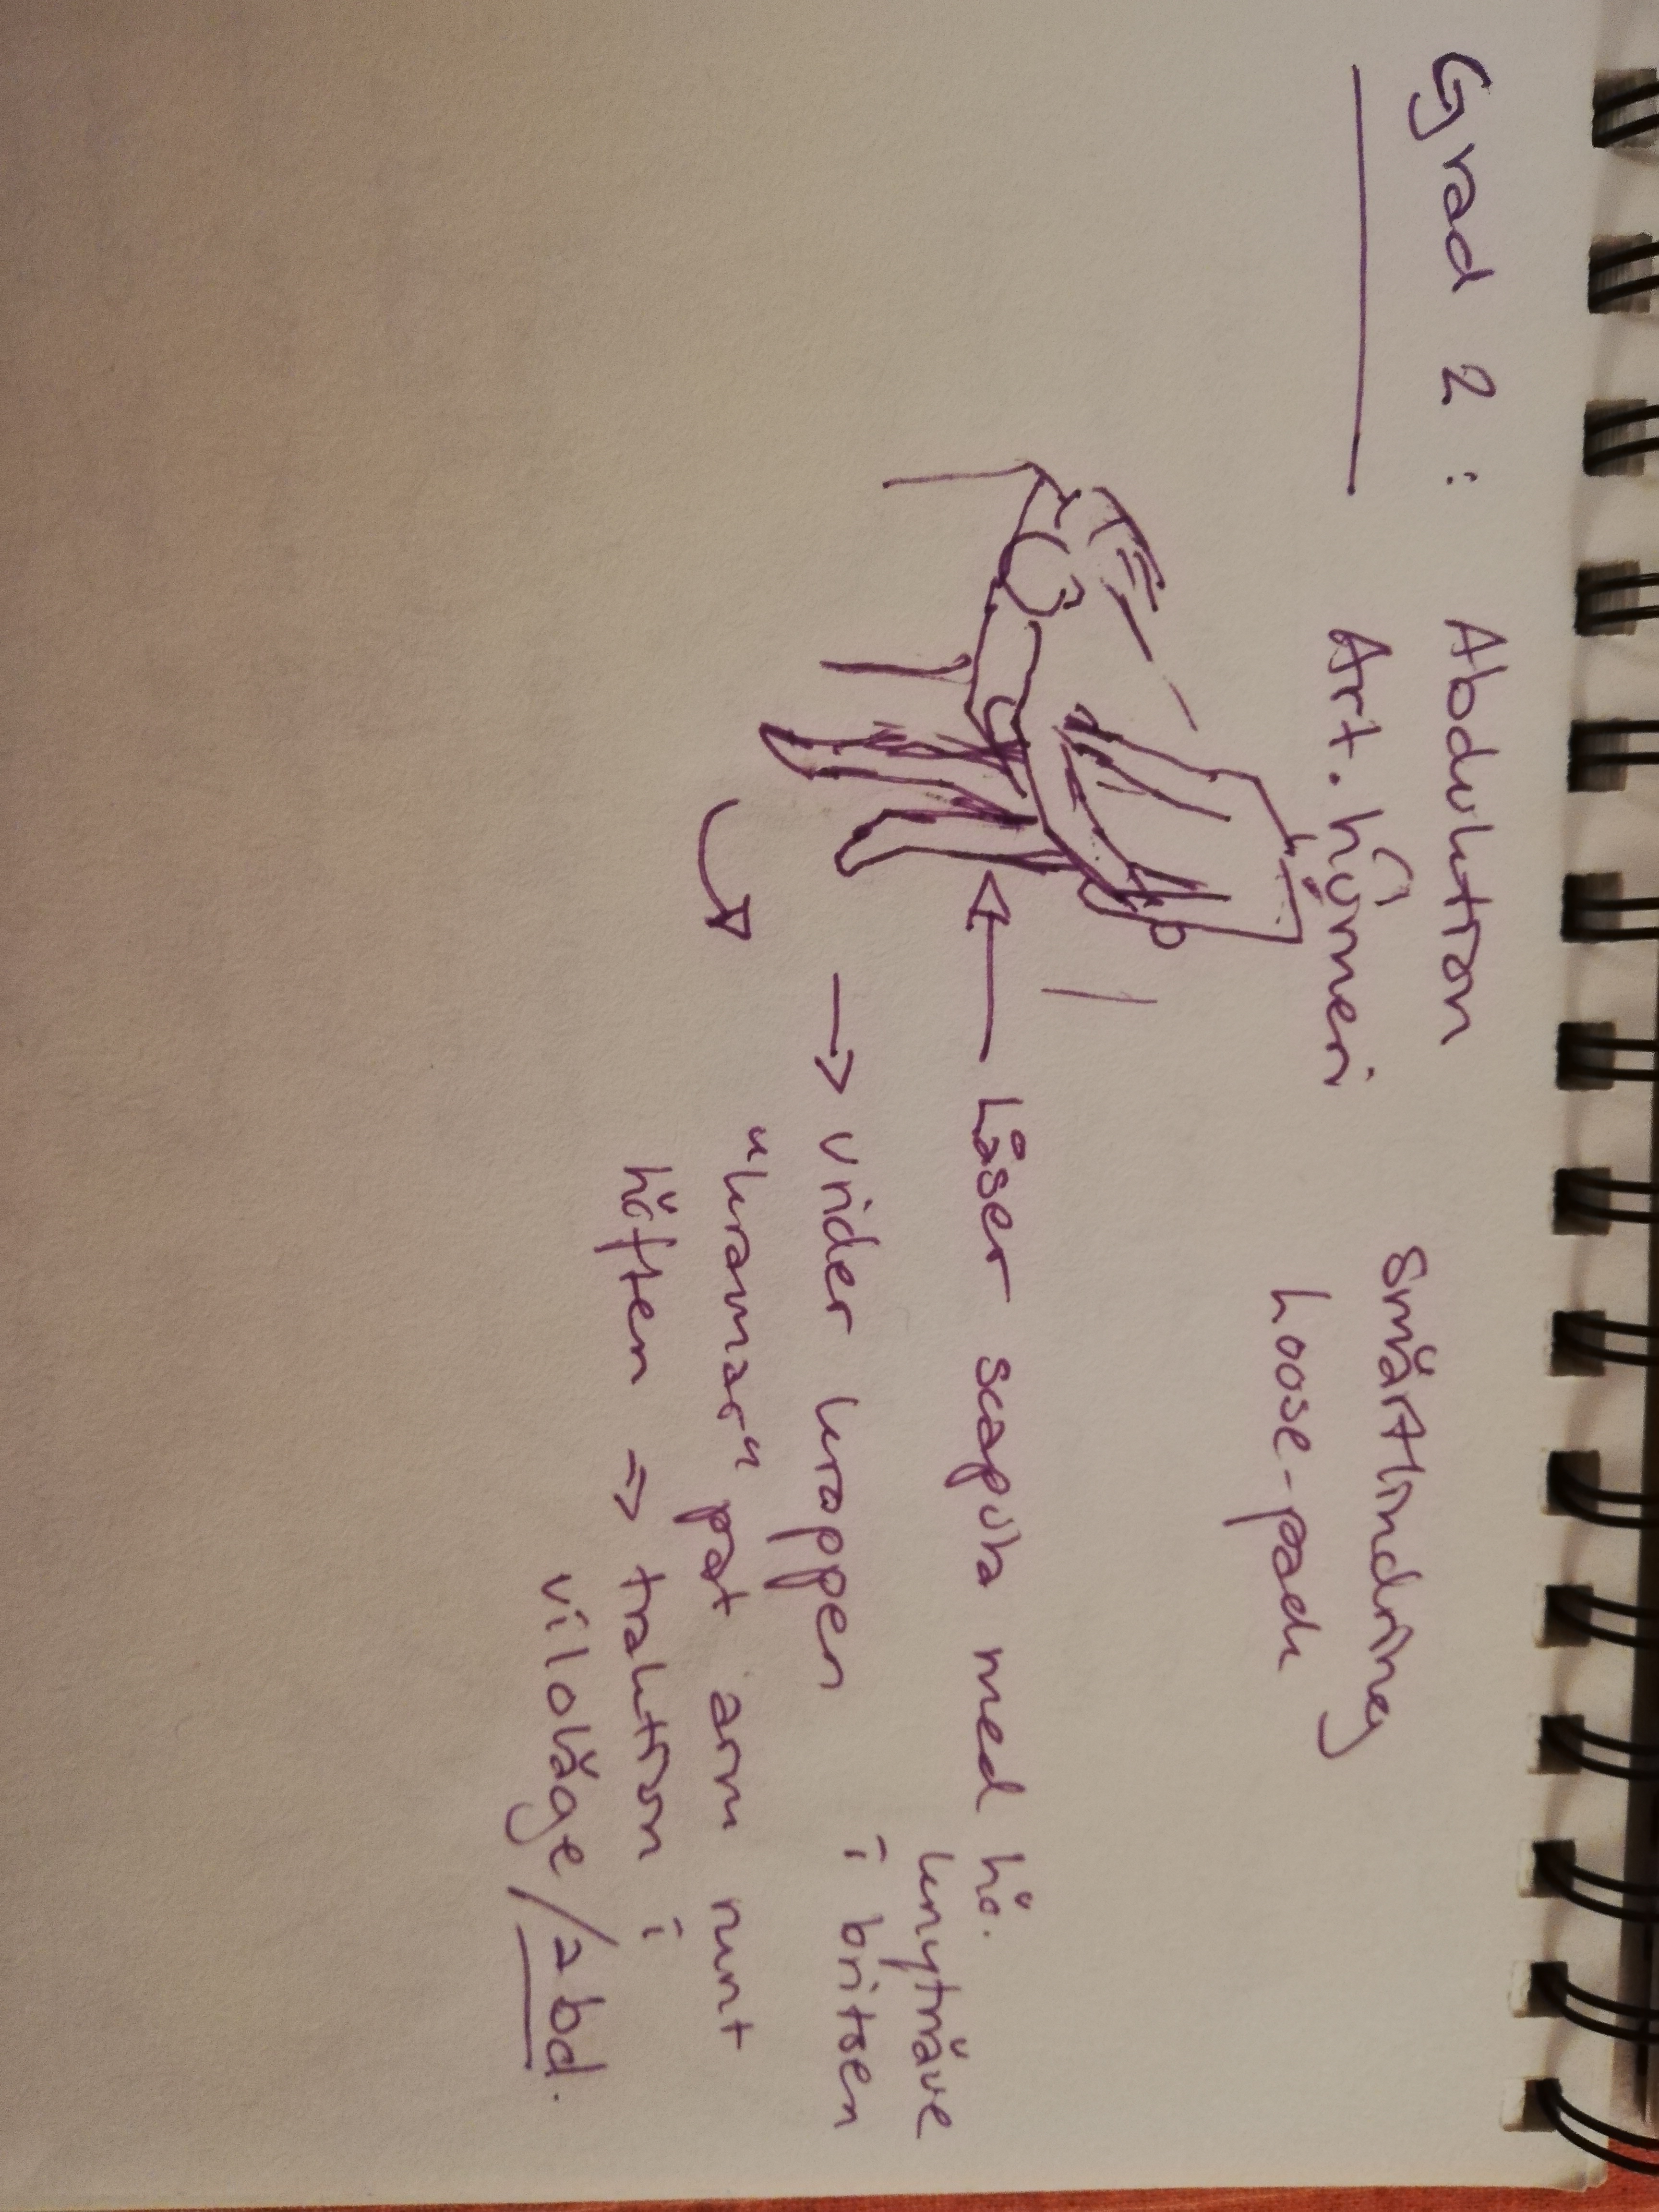 Grad 2: Abduktion
Art. humeri
Smärtlindring
Loose-pack
Låser scapula med hö.
knytnäve
i britsen
vrider kroppen
"kramar" pat arm runt
höften ⇒ traktion i
viloläge/abd.